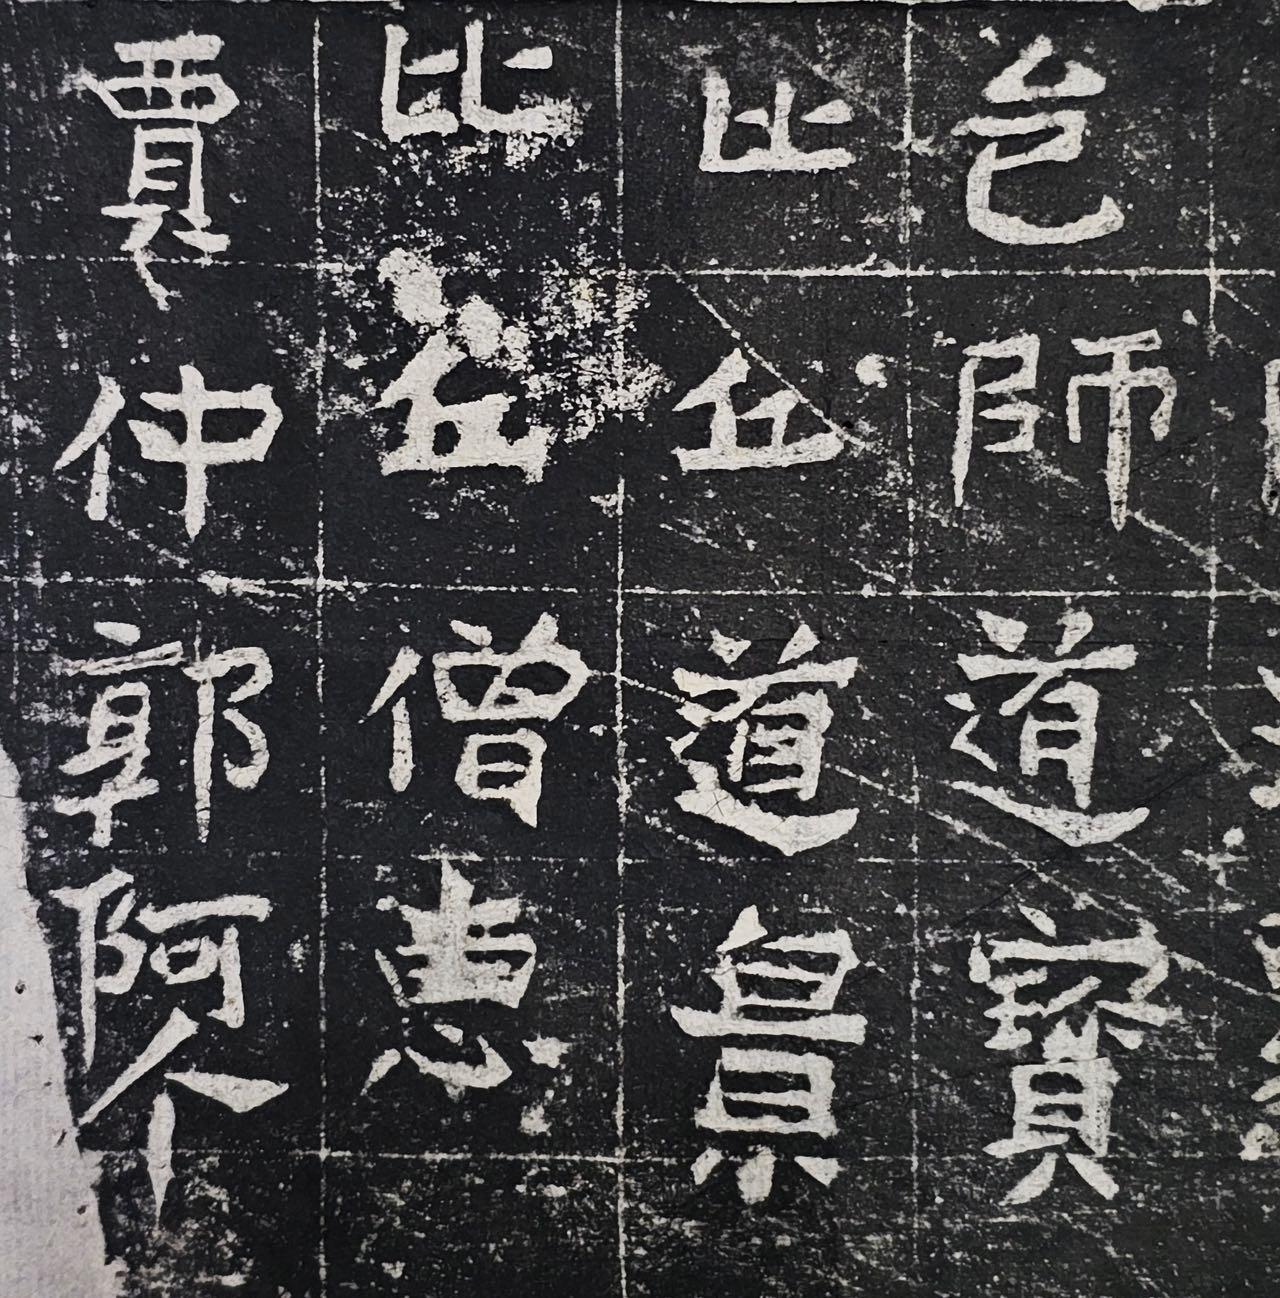 邑師道寶
比丘道
比丘僧惠
賈仲郭阿个